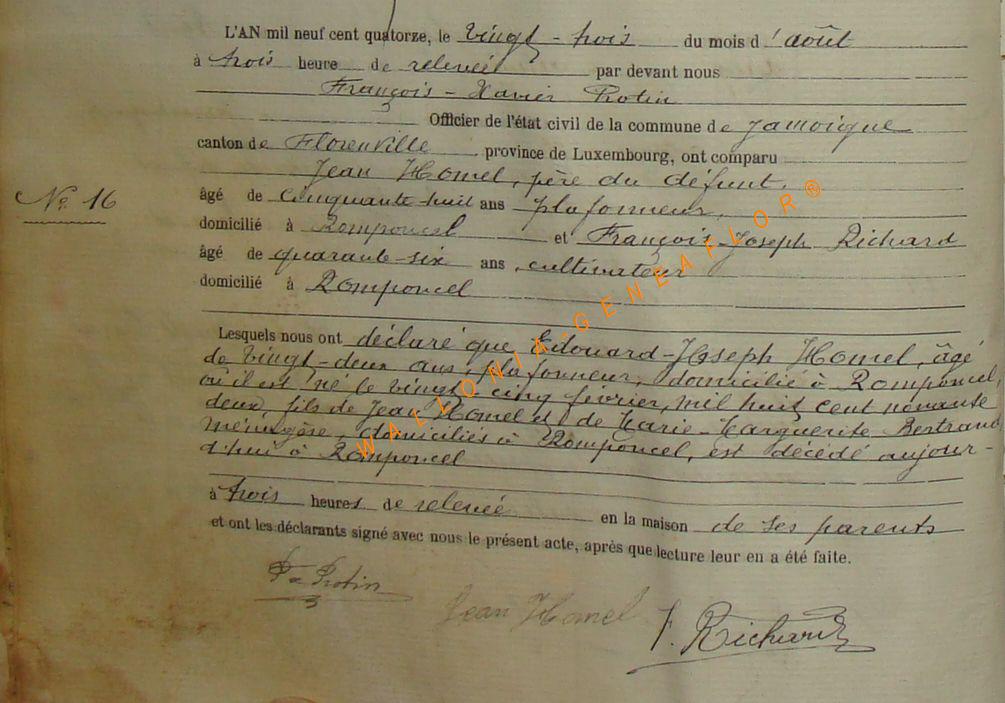 L'AN mil neuf cent quatorze, le vingt-trois du mois d'août
à trois heure de relevée par devant nous
François-Xavier Protin
Officier de l'état civil de la commune de Jamoigne
canton de Florenville province de Luxembourg, ont comparu
Jean Homel, père du défunt,
N° 16
âgé de cinquante-huit ans plafonneur,
domicilié à Romponcel et François-Joseph Richard
âgé de quarante-six ans, cultivateur
domicilié à Romponcel
Lesquels nous ont déclaré que Edouard-Joseph Homel, âgé
de vingt-deux ans, plafonneur, domicilié à Romponcel,
où il est né le vingt-cinq fevrier, mil huit cent nonante
deux, fils de Jean Homel et de Marie-Marguerite Bertrand,
ménagère, domiciliés à Romponcel, est décédé aujour-
d'hui à Romponcel
à trois heures de relevée en la maison de ses parents
et ont les déclarants signé avec nous le présent acte, après que lecture leur en a été faite.
Protin
Jean Homel
F. Richard
WALLONIA-GENEAFLOR®